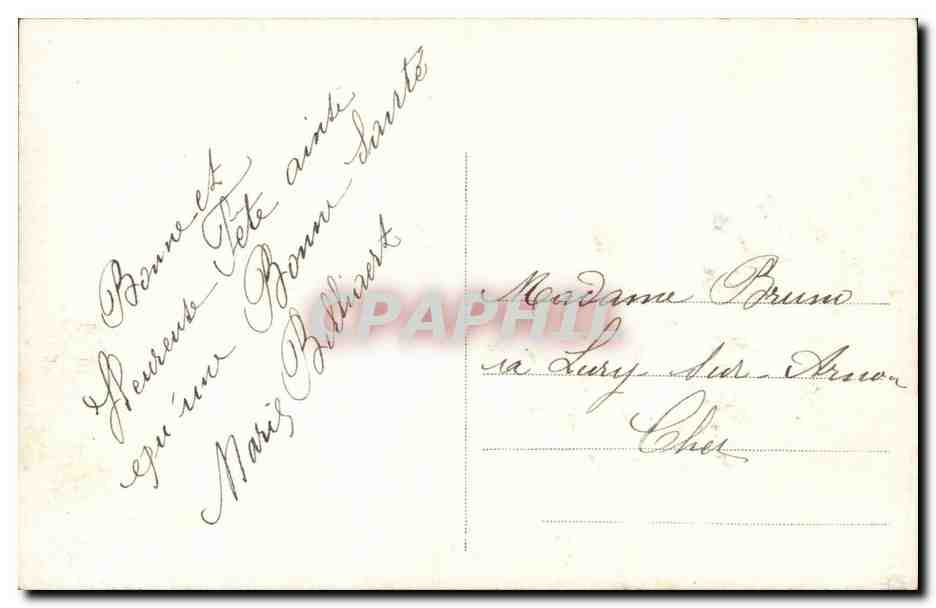 Bonne et
Heureuse Fête ainsi
qu'une Bonne Santé
Marie
Madame Brun
a Lury-sur-Arnon
Cher
CPAPHIL